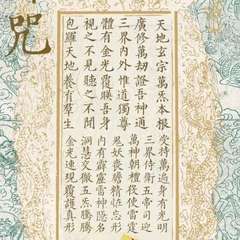 咒
天地玄宗萬炁本根
廣修萬劫證吾神通
三界內外惟道獨尊
體有金光覆暎吾身
視之不見聽之不聞
包羅天地養育群生
受持萬遍身有光明
三界侍衛五帝司迎
萬神朝禮役使雷霆
鬼妖喪膽精怪忘形
內有霹靂雷神隱名
洞慧交徹五炁騰騰
金光速現覆護真形